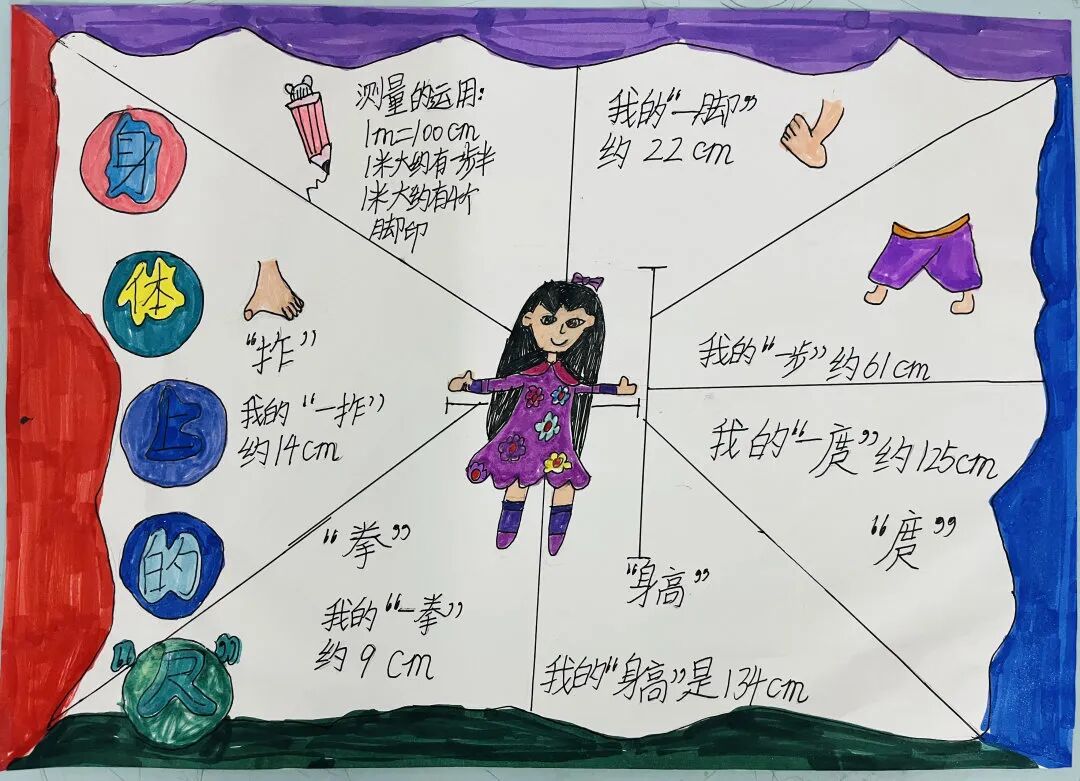 身
体
上
的
“尺”
测量的运用:
1m=100cm
1米大约有一步半
1米大约有4个
脚印
我的“一脚”
约22cm
我的“一步”约61cm
我的“一度”约125cm
“度”
“身高”
我的“身高”是134cm
“拳”
我的“一拳”
约9cm
“拃”
我的“一拃”
约14cm